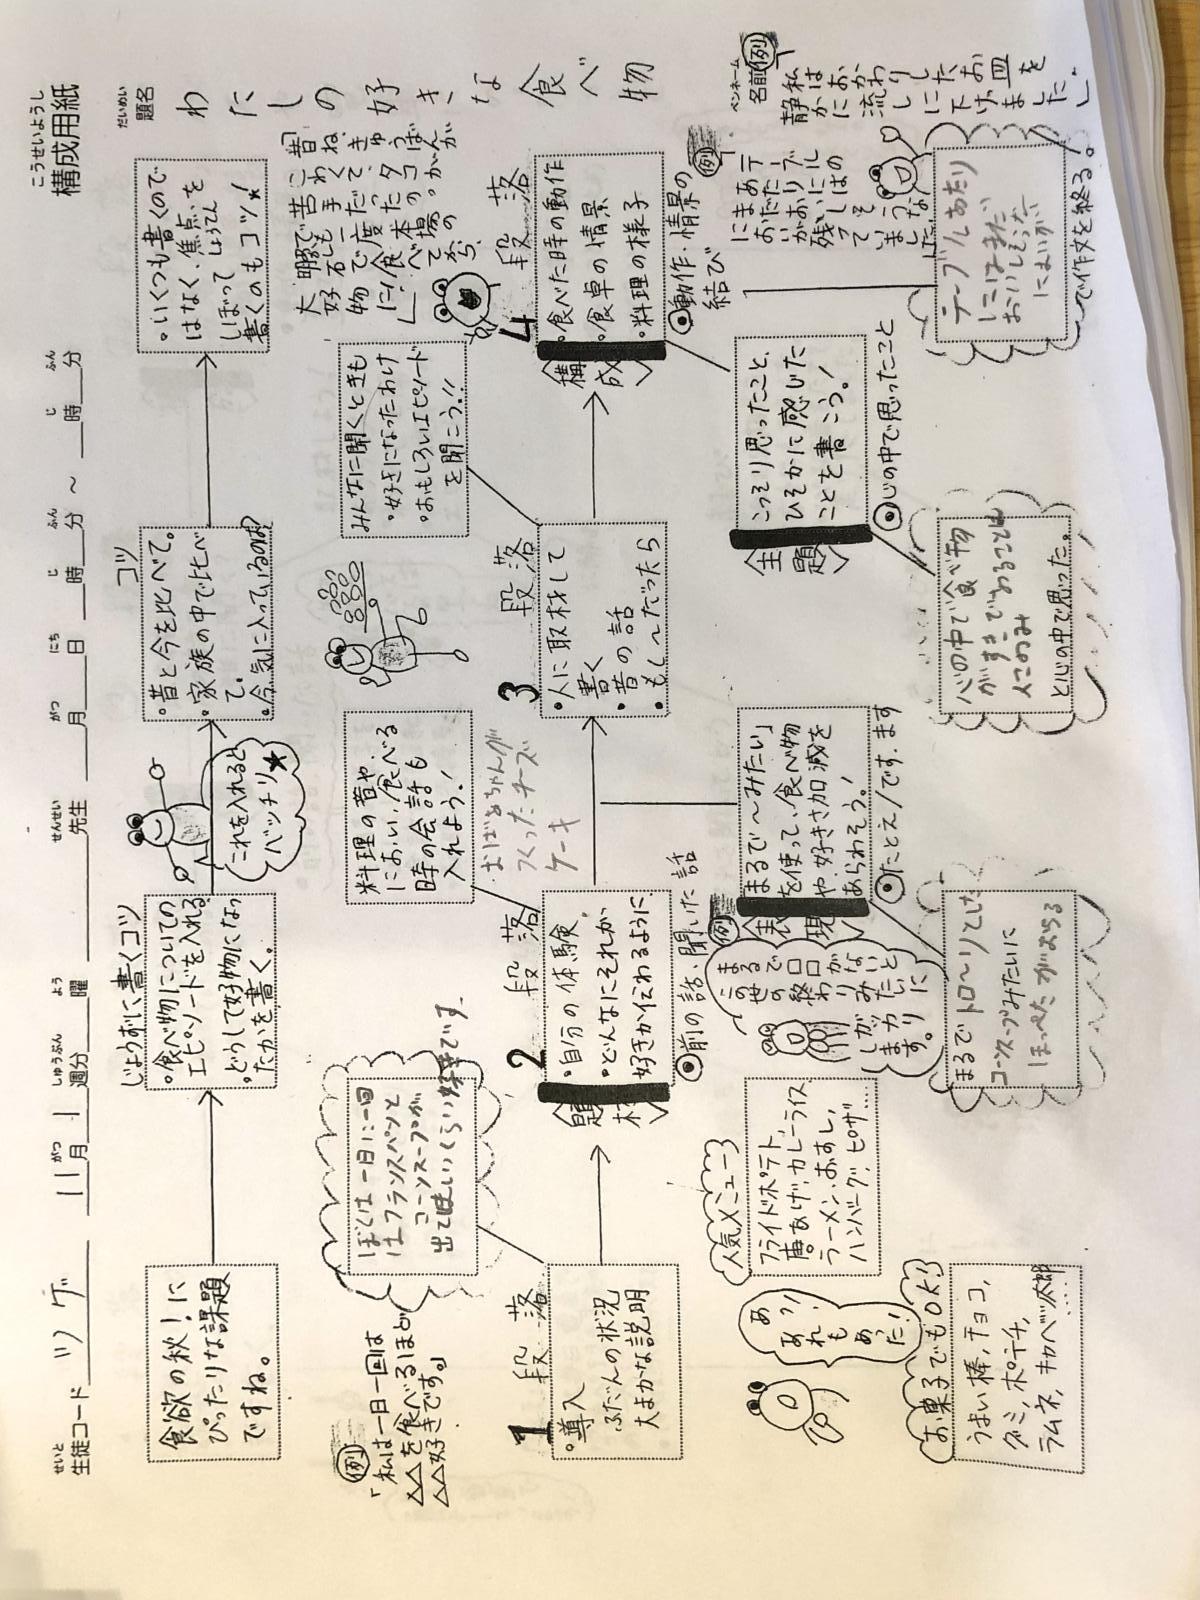 こうせいようし
構成用紙
せいと
生徒コード ツゲ 11月 1週分 曜 先生 月 日 時 分 ～ 時 分
がつ しゅうぶん よう せんせい がつ にち じ ふん じ ふん
だいめい
題名
わたしの好きな食べ物
ペンネーム
名前
食欲の秋！に
ぴったりな課題
ですね。
じょうずに書くコツ
・食べ物についての
エピソードを入れる
・どうして好物になっ
たかを書く。
これを入れると
バッチリ★
コツ
・昔と今を比べて。
・家族の中で比べ
て。
・今、気に入っているのは？
・いくつも書くので
はなく、焦点を
しょうてん
しぼって
書くのもコツ！★
例
「私は一日一回は
△△を食べるほど
△△好きです。」
ぼくは一日に一回
は、フランスパンと
コーンスープが
出てほしいくらい好きです。
料理の音や、
におい、食べる
時の会話も
入れよう！
おばあちゃんが
つくったチーズ
ケーキ
みんなに聞くときも
・好きになったわけ
・おもしろいエピソード
を聞こう！！
1段落
・導入
ふだんの状況
大まかな説明
2段落
〈題材〉
・自分の体験
・どんなにそれが
好きか伝わるように
◎前の話、聞いた話
3段落
・人に取材して
書く
・昔の話
・もし～だったら
4段落
〈構成〉
・食べた時の動作
・食卓の情景
・料理の様子
◎動作・情景の
結び
人気メニュー
フライドポテト、
唐あげ、カレーライス
ラーメン、おすし、
ハンバーグ、ピザ…
〈表現〉
「まるで～みたい」
を使って、食べ物
や、好きさ加減を
あらわそう！
◎たとえ／です、ます
〈主題〉
こっそり思ったこと、
ひそかに感じた
ことを書こう！
◎心の中で思ったこと
例
まるで
この世の
終わり
みたいに
例
私は、おかわりした
お皿を
静かに
流しに
下げました。」
例
テーブルには
まだ
においが
残って
いました。
あ
あれ？！
も
あった！
お菓子でもOK！
うまい棒、チョコ、
グミ、ポテチ、
ラムネ、キャベツ太郎
まるでトロ～リとした
コーンスープみたいに
ほっぺたがおちる
心の中で食べ物
がすきで
と心の中で思った。
テーブルあたり
にはまだ
おいしそうな
においが
で作文を終る。